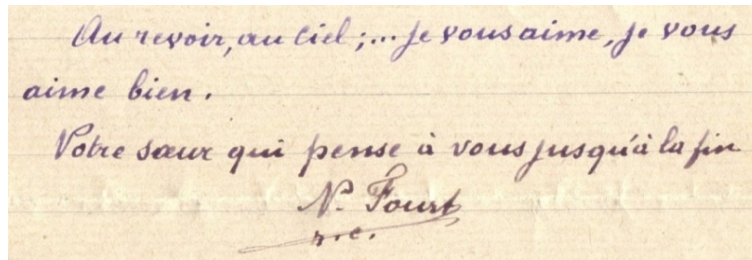 Au revoir, au Ciel ;... je vous aime, je vous
aime bien.
Votre sœur qui pense à vous jusqu'à la fin
N. Fourt
r.c.